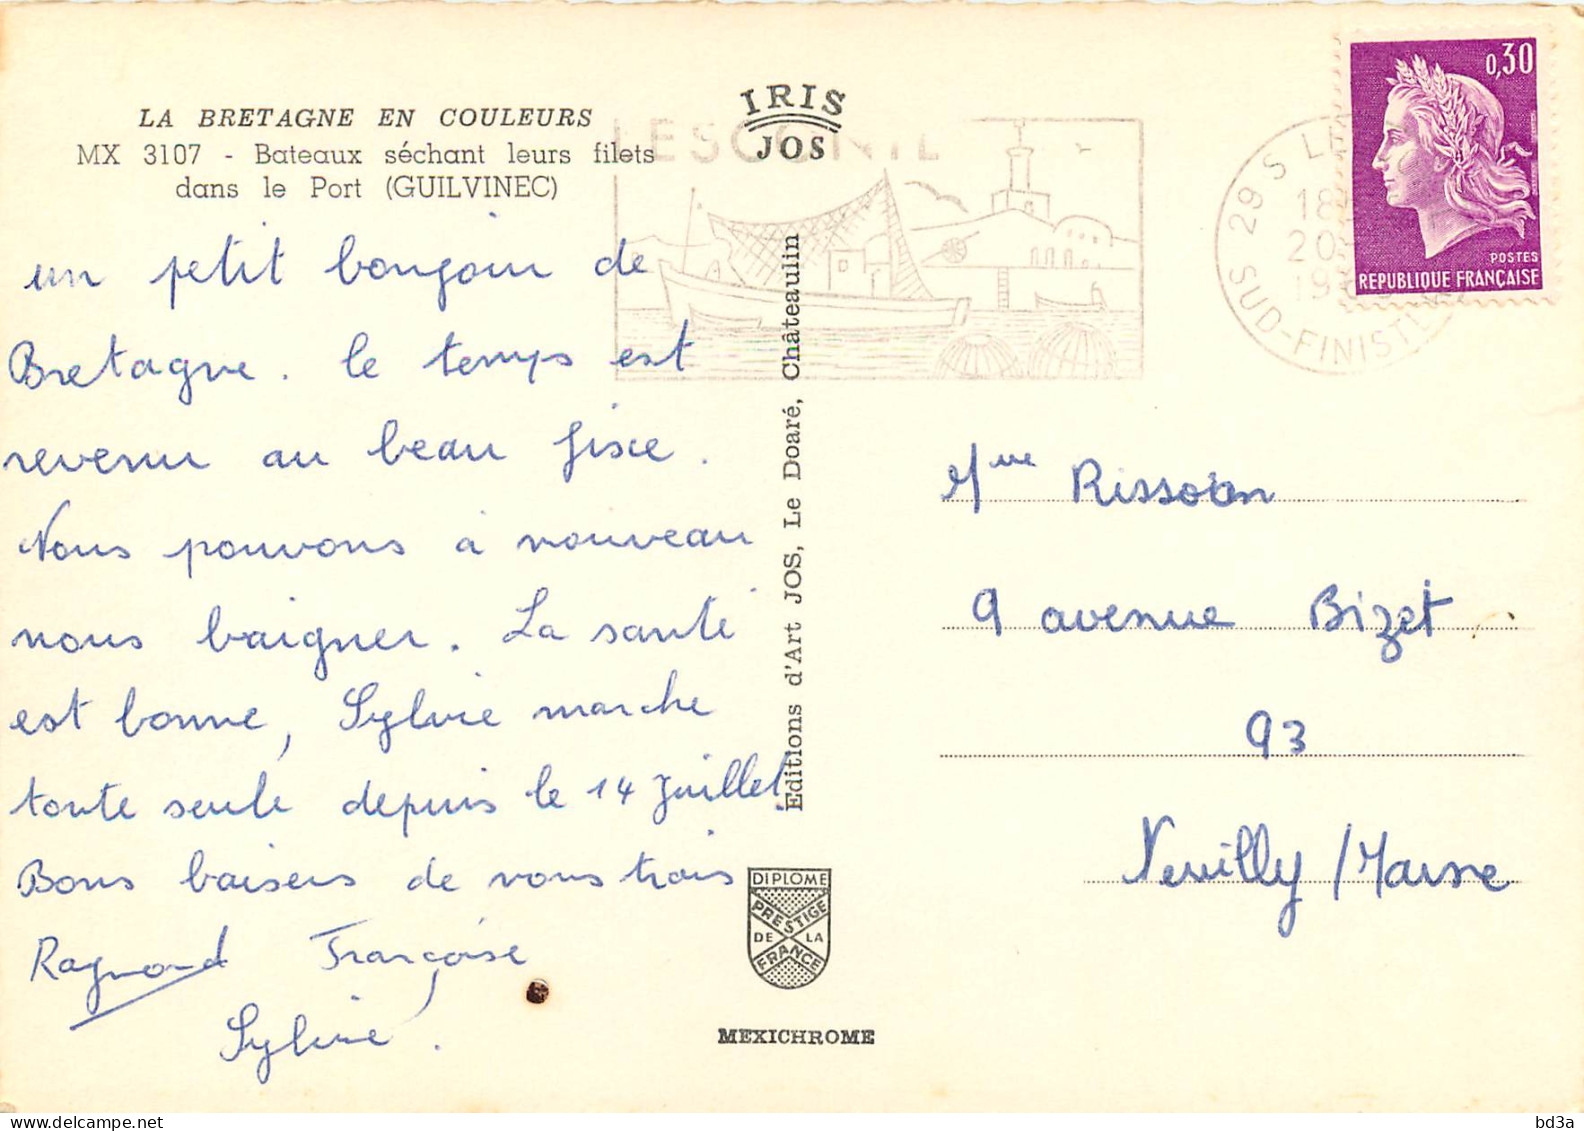 LA BRETAGNE EN COULEURS
MX 3107 - Bateaux séchant leurs filets
dans le Port (GUILVINEC)
IRIS
JOS
LESCONIL
0,30
POSTES
REPUBLIQUE FRANÇAISE
29 S
18
20
19
SUD-FINIST
un petit bonjour de
Bretagne. le temps est
revenu au beau fixe.
Nous pouvons à nouveau
nous baigner. La santé
est bonne, Sylvie marche
toute seule depuis le 14 Juillet.
Bons baisers de nous trois
Raymond Françoise
Sylvie.
Editions d'Art JOS, Le Doaré, Châteaulin
DIPLOME
PRESTIGE
DE LA
FRANCE
MEXICHROME
Mme
9 avenue Bizet
93
Neuilly / Marne
bd3a